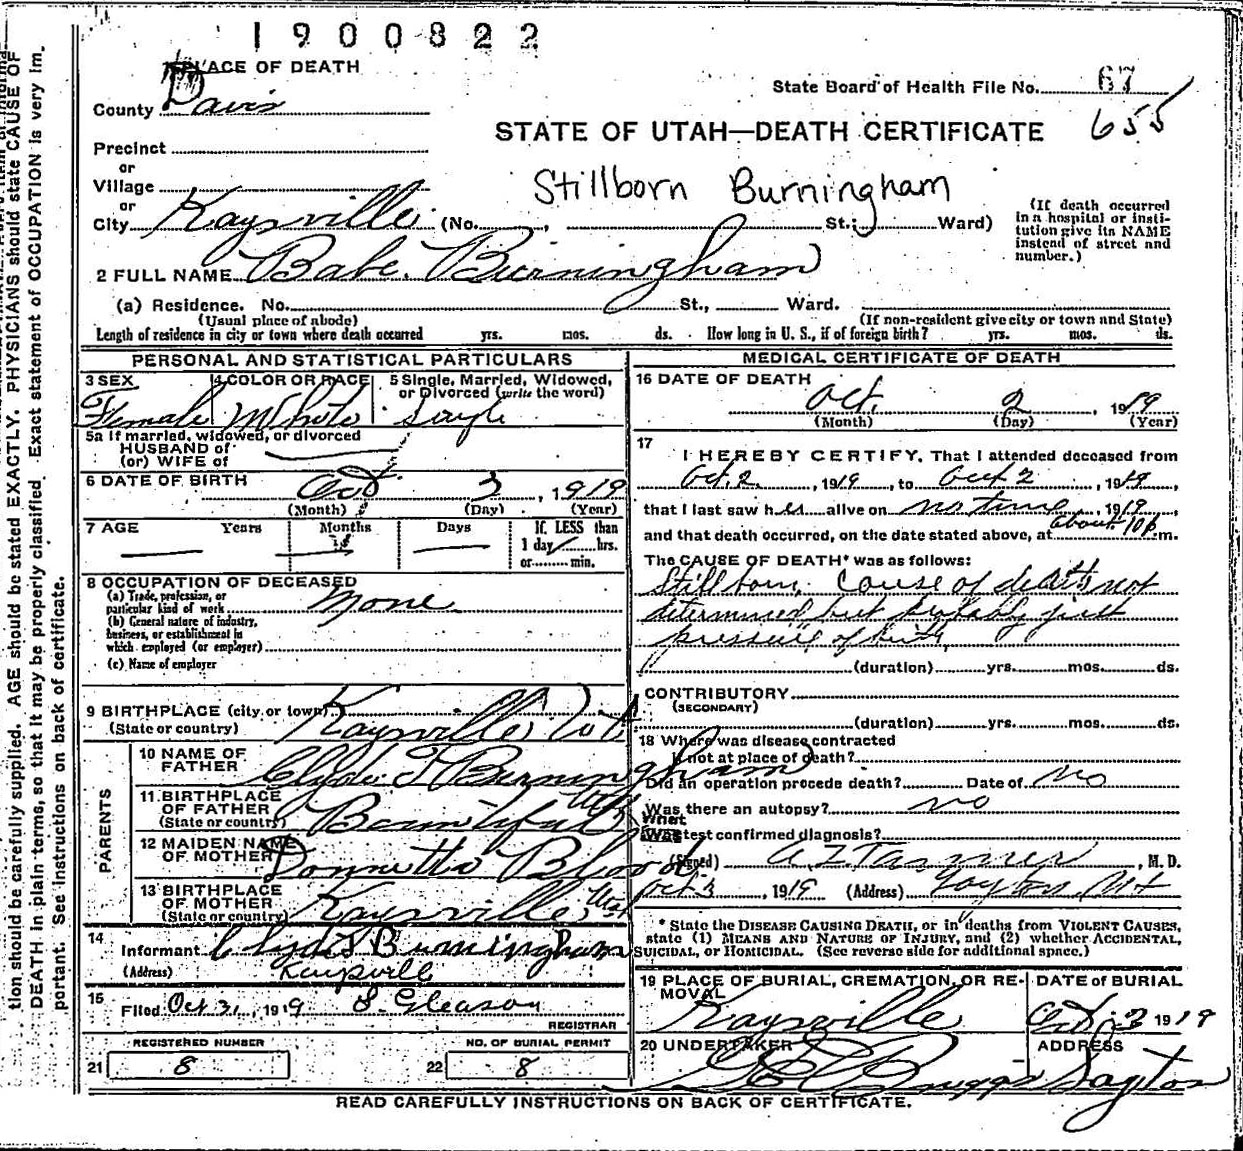 1900822
1 PLACE OF DEATH
State Board of Health File No. 67
655
County Davis
STATE OF UTAH—DEATH CERTIFICATE
Precinct
or
Village
Stillborn Burningham
or
City Kaysville (No. , St.; Ward)
(If death occurred
in a hospital or insti-
tution give its NAME
instead of street and
number.)
2 FULL NAME Babe Burningham
(a) Residence. No. St., Ward.
(Usual place of abode)
(If non-resident give city or town and State)
Length of residence in city or town where death occurred yrs. mos. ds. How long in U. S., if of foreign birth? yrs. mos. ds.
PERSONAL AND STATISTICAL PARTICULARS
3 SEX
Female
4 COLOR OR RACE
White
5 Single, Married, Widowed,
or Divorced (write the word)
Single
5a If married, widowed, or divorced
HUSBAND of
(or) WIFE of
6 DATE OF BIRTH
Oct 2, 1919
(Month) (Day) (Year)
7 AGE Years Months Days If LESS than
1 day hrs.
or min.
8 OCCUPATION OF DECEASED
(a) Trade, profession, or
particular kind of work None
(b) General nature of industry,
business, or establishment in
which employed (or employer)
(c) Name of employer
9 BIRTHPLACE (city or town)
(State or country) Kaysville Ut
PARENTS
10 NAME OF
FATHER Clyde T Burningham
11 BIRTHPLACE
OF FATHER
(State or country) Bountiful Utah
12 MAIDEN NAME
OF MOTHER Donnetta Blood
13 BIRTHPLACE
OF MOTHER
(State or country) Kaysville, Utah
14
Informant Clyde T Burningham
(Address) Kaysville
15
Filed Oct 31, 1919 S. Gleason
REGISTRAR
REGISTERED NUMBER
21 8
NO. OF BURIAL PERMIT
22 8
MEDICAL CERTIFICATE OF DEATH
16 DATE OF DEATH
Oct. 2, 1919
(Month) (Day) (Year)
17
I HEREBY CERTIFY, That I attended deceased from
Oct. 2, 1919, to Oct 2, 1919,
that I last saw her alive on no time, 1919,
and that death occurred, on the date stated above, at about 10 p.m.
The CAUSE OF DEATH* was as follows:
Stillborn. Cause of death not
determined but probably just
pressure of birth
(duration) yrs. mos. ds.
CONTRIBUTORY
(SECONDARY)
(duration) yrs. mos. ds.
18 Where was disease contracted
if not at place of death?
Did an operation precede death? Date of no
Was there an autopsy? no
What
test confirmed diagnosis?
(Signed) , M. D.
Oct 3, 1919 (Address) Layton Ut
* State the DISEASE CAUSING DEATH, or in deaths from VIOLENT CAUSES,
state (1) MEANS AND NATURE OF INJURY, and (2) whether ACCIDENTAL,
SUICIDAL, or HOMICIDAL. (See reverse side for additional space.)
19 PLACE OF BURIAL, CREMATION, OR RE-
MOVAL
Kaysville
DATE of BURIAL
Oct. 3 1919
20 UNDERTAKER
ADDRESS
Layton
READ CAREFULLY INSTRUCTIONS ON BACK OF CERTIFICATE.
tion should be carefully supplied. AGE should be stated EXACTLY. PHYSICIANS should state CAUSE OF
DEATH in plain terms, so that it may be properly classified. Exact statement of OCCUPATION is very im-
portant. See instructions on back of certificate.